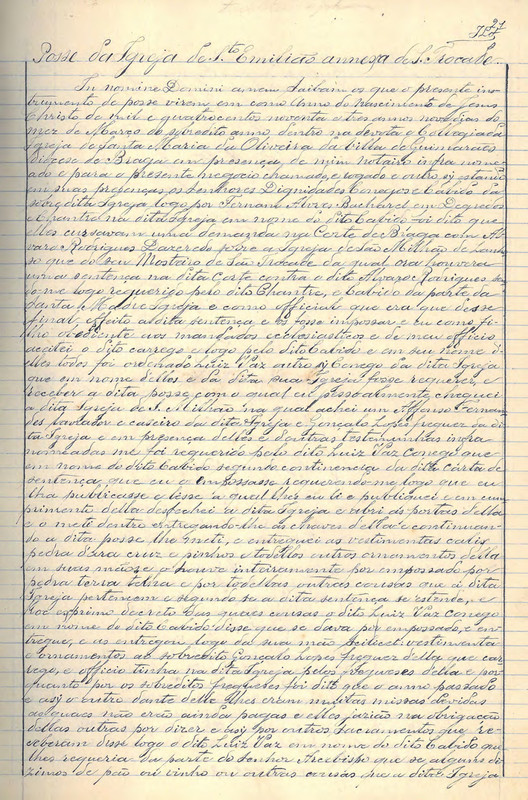 Posse da Igreja de S.to Emilião annexa de S. Trocade
In nomine Domini amem Saibam os que o presente ins-
trumento de posse virem, em como Anno do Nascimento de Jesus
Christo de mil e quatrocentos noventa e tres annos nove dias do
mez de Março do sobredito anno, dentro na devota e Collegiada
Igreja de Santa Maria da Oliveira da Villa de Guimarães
Diocese de Braga em presença de mim notairo infra nome-
ado e para o presente negocio chamado, e rogado e outro sy estando
em suas presenças, os Senhores Dignidades Conegos e Cabido da
sobredita Igreja, logo por Fernam Alvres Bacharel em Degredos
e Chantre na dita Igreja em nome do dito Cabido foi dito que
elles cursavam uma demanda na Corte de Braga com Al-
varo Rodrigues Dazeredo sobre a Igreja de São Milhão de
so que do seu Mostairo de São Trocade da qual ora houvera
uma sentença na dita Corte contra o dito Alvaro Rodrigues sen-
do me logo requerido pelo dito Chantre, e Cabido da parte da
Santa Madre Igreja e como official que era que desse
final effeito a dita sentença e os fosse impossar e eu como fi-
lho obediente aos mandados ecclesiasticos e de meu officio
aceitei o dito carrego e logo pelo dito Cabido e em seu nome d'-
elles todos foi ordenado Luiz Vaz outro sy Conego da dita Igreja
que em nome delles e da dita sua Igreja fosse requerer, e
receber a dita posse, com o qual eu pessoalmente cheguei
a dita Igreja de S. Milhão na qual achei um Affonso Fernan-
des pavlador e caseiro da dita Igreja e Gonçalo Lopes freguez da di-
ta Igreja e em presença delles e doutras testemunhas infra
nomeadas me foi requerido pelo dito Luiz Vaz Conego que
em nome do dito Cabido segundo continencia da dita carta de
sentença que eu o empossasse requerendo me logo que eu
lha pubricasse e lesse a qual lhes eu li e publiquei e em cum-
primento della despechei a dita Igreja e abri as portas della
e o meti dentro entregando-lhe as chaves della e continuan-
do a dita posse lhe meti, e entreguei as vestimentas calis
pedra d'ara cruz e sinhos e todollos outros ornamentos della
em suas mãos e o houve inteiramente por empossado por
pedra terra telha e por todallas outras cousas que á dita
Igreja pertencem e segundo se a dita sentença se estende,
e o exprimo decreto Das quaes cousas o dito Luiz Vaz Conego
em nome do dito Cabido disse que se dava por empossado, e en-
tregue, e as entregou logo da sua mão scilicet vestimenta
e ornamentos ao sobredito Gonçalo Lopes freguez della que car-
rego, e officio tinha na dita Igreja pelos freguezes della e por
quanto por os sobreditos freguezes foi dito que o anno passado
e asy o outro dante delle lhes eram muitas missas devidas
as quaes não erão ainda pagas e elles jazião na obrigação
dellas outras por dizer e asy por outros sacramentos que re-
ceberam disse logo o dito Luiz Vaz em nome do dito Cabido que
lhes requeria da parte do Senhor Arcebispo que se alguns di-
zimos de pão ou vinho ou outras cousas que a dita Igreja